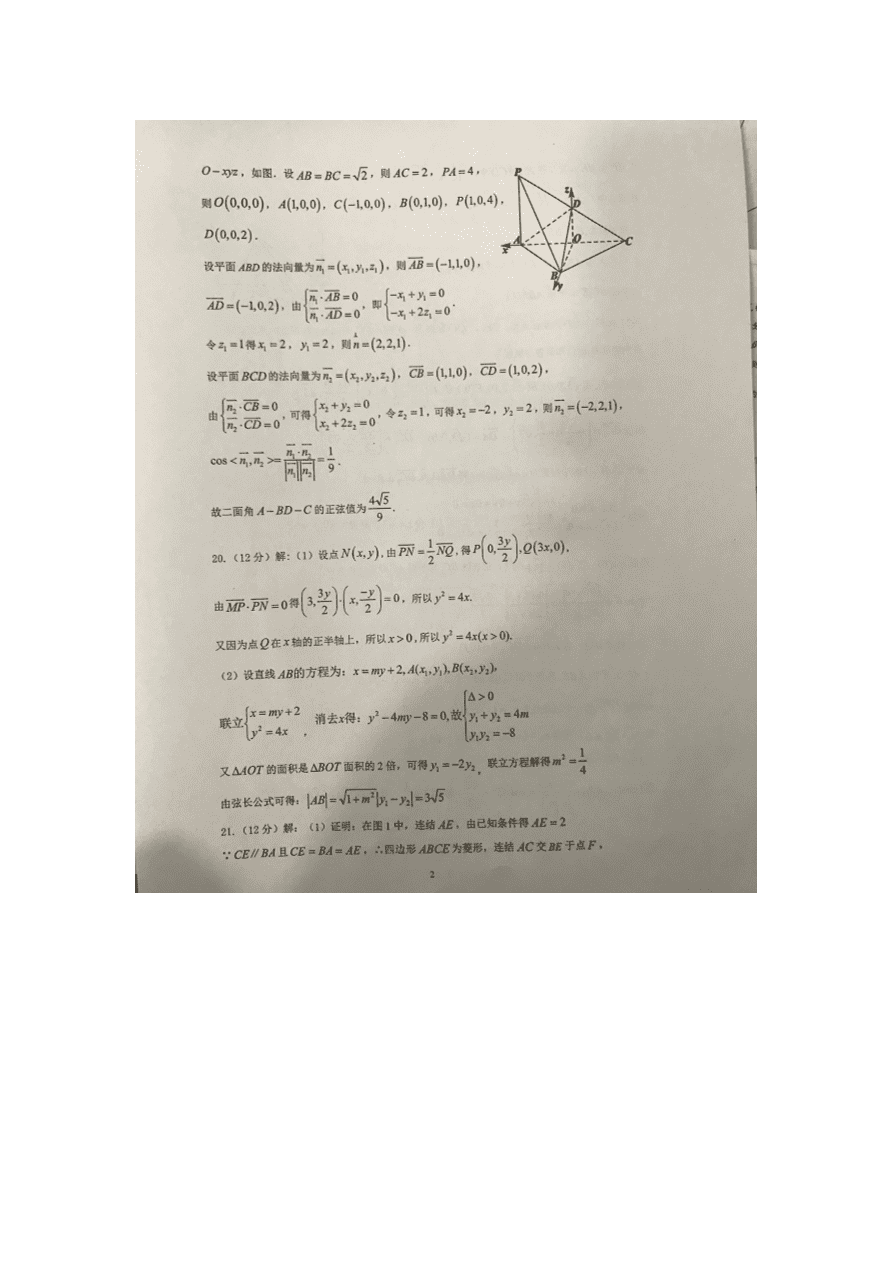 O−xyz，如图．设 AB=BC=√2，则 AC=2，PA=4，
则 O(0,0,0)，A(1,0,0)，C(−1,0,0)，B(0,1,0)，P(1,0,4)，
D(0,0,2)．
P
z
D
A
O
C
x
B
y
设平面 ABD 的法向量为 n₁=(x₁,y₁,z₁)，则 AB=(−1,1,0)，
AD=(−1,0,2)，由{n₁·AB=0 n₁·AD=0，即{−x₁+y₁=0 −x₁+2z₁=0．
令 z₁=1得 x₁=2，y₁=2，则 n=(2,2,1)．
设平面 BCD 的法向量为 n₂=(x₂,y₂,z₂)，CB=(1,1,0)，CD=(1,0,2)，
由{n₂·CB=0 n₂·CD=0，可得{x₂+y₂=0 x₂+2z₂=0，令 z₂=1，可得 x₂=−2，y₂=2，则 n₂=(−2,2,1)，
cos<n₁,n₂>=n₁·n₂/|n₁||n₂|=1/9．
故二面角 A−BD−C 的正弦值为 4√5/9．
20.（12分）解:（1）设点 N(x,y)，由 PN=1/2NQ，得 P(0,3y/2)，Q(3x,0)，
由 MP·PN=0得(3,3y/2)·(x,−y/2)=0，所以 y²=4x.
又因为点 Q 在 x 轴的正半轴上，所以 x>0，所以 y²=4x(x>0).
（2）设直线 AB的方程为：x=my+2,A(x₁,y₁),B(x₂,y₂),
联立{x=my+2 y²=4x，消去x得：y²−4my−8=0,故{Δ>0 y₁+y₂=4m y₁y₂=−8
又 ΔAOT 的面积是 ΔBOT 面积的 2 倍，可得 y₁=−2y₂。联立方程解得 m²=1/4
由弦长公式可得：|AB|=√1+m²|y₁−y₂|=3√5
21.（12分）解：（1）证明：在图 1 中，连结 AE、由已知条件得 AE=2
∵CE//BA 且 CE=BA=AE，∴四边形 ABCE 为菱形，连结 AC 交 BE 于点 F，
2